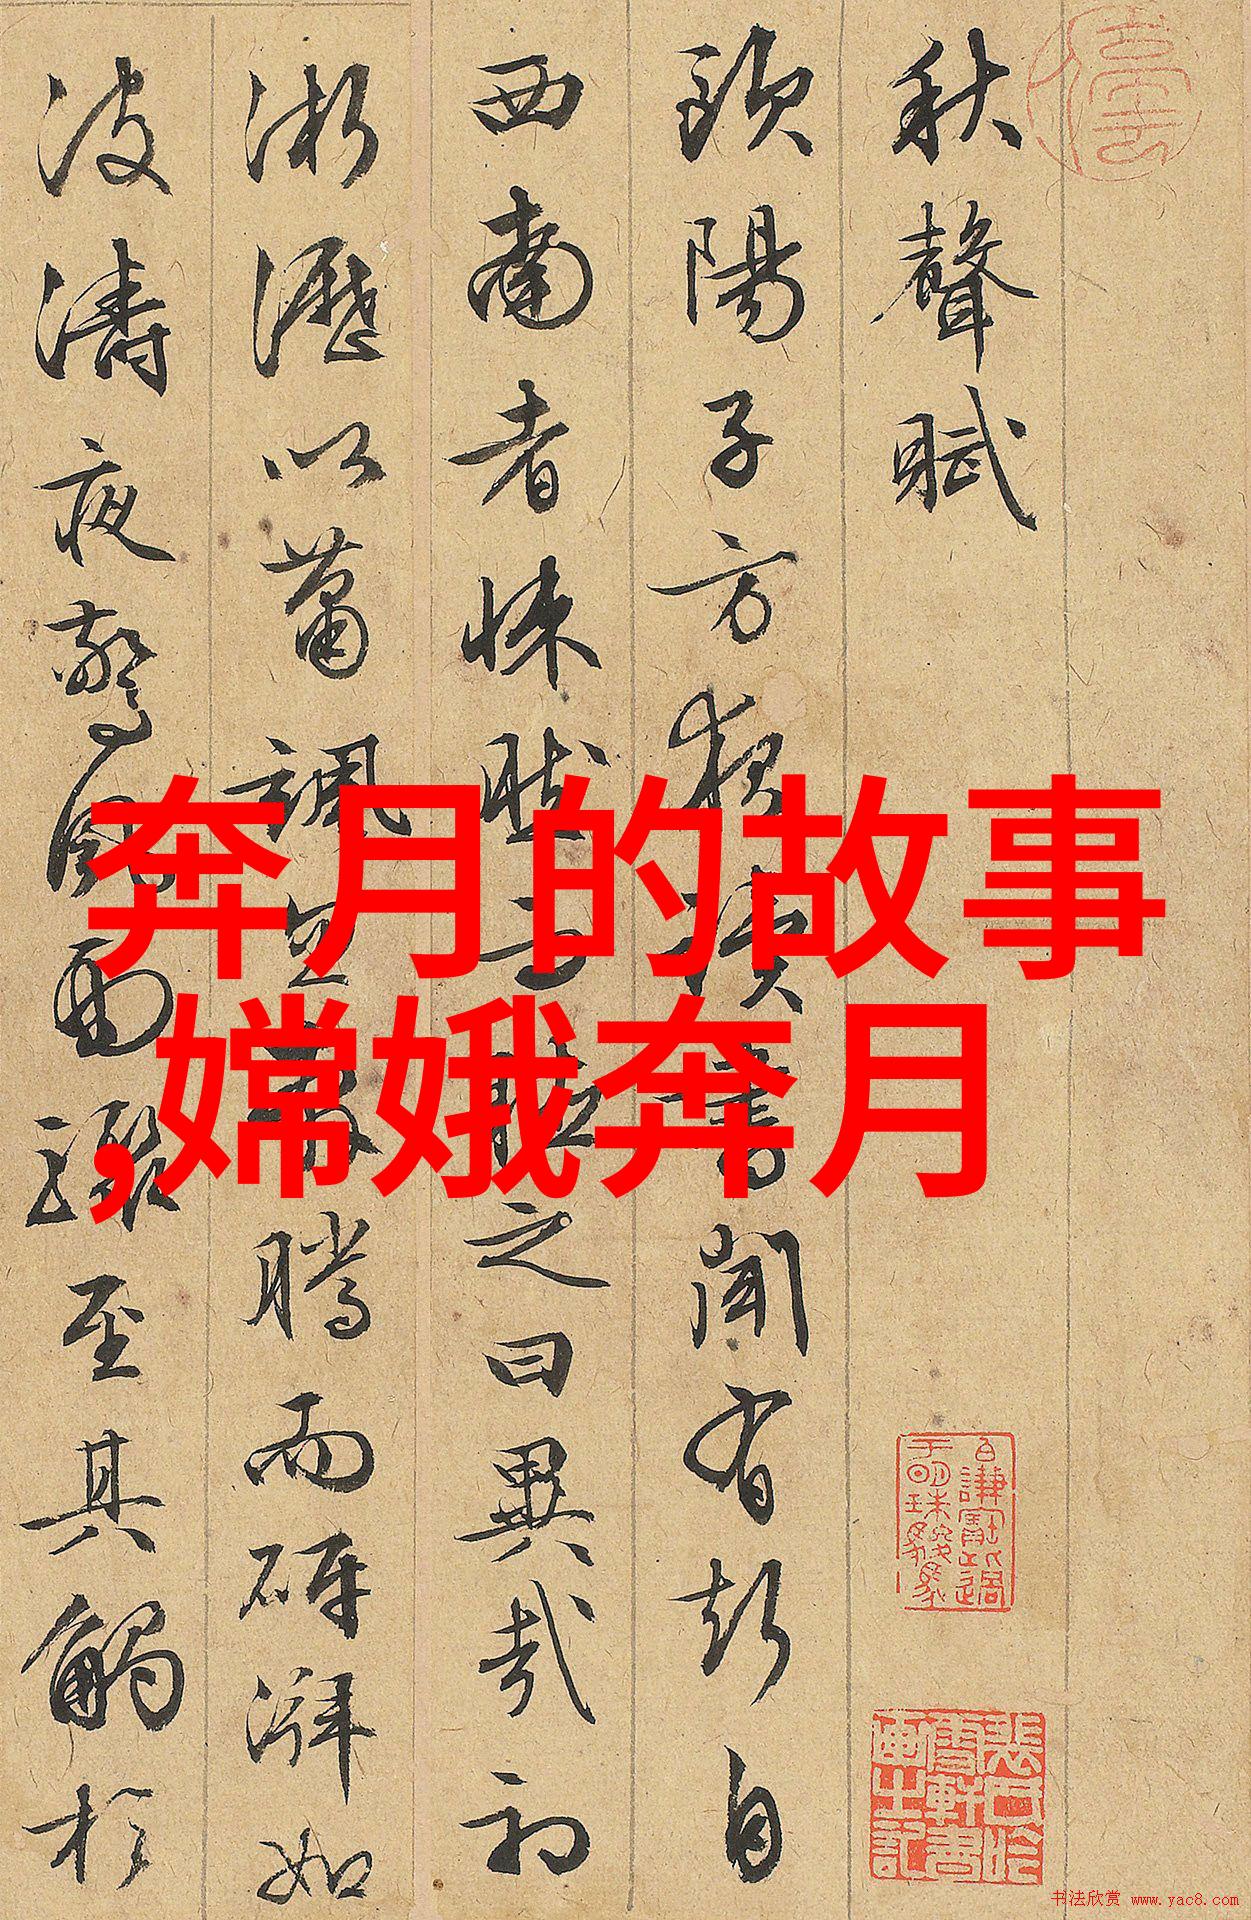 秋聲賦
歐陽子方夜讀書聞有聲自
西南者悚然而聽之曰異哉初
淅瀝以蕭颯忽奔騰而砰湃如
波濤夜驚風雨驟至其觸於
奔月的故事
,嫦娥奔月
书法欣赏 www.yac8.com